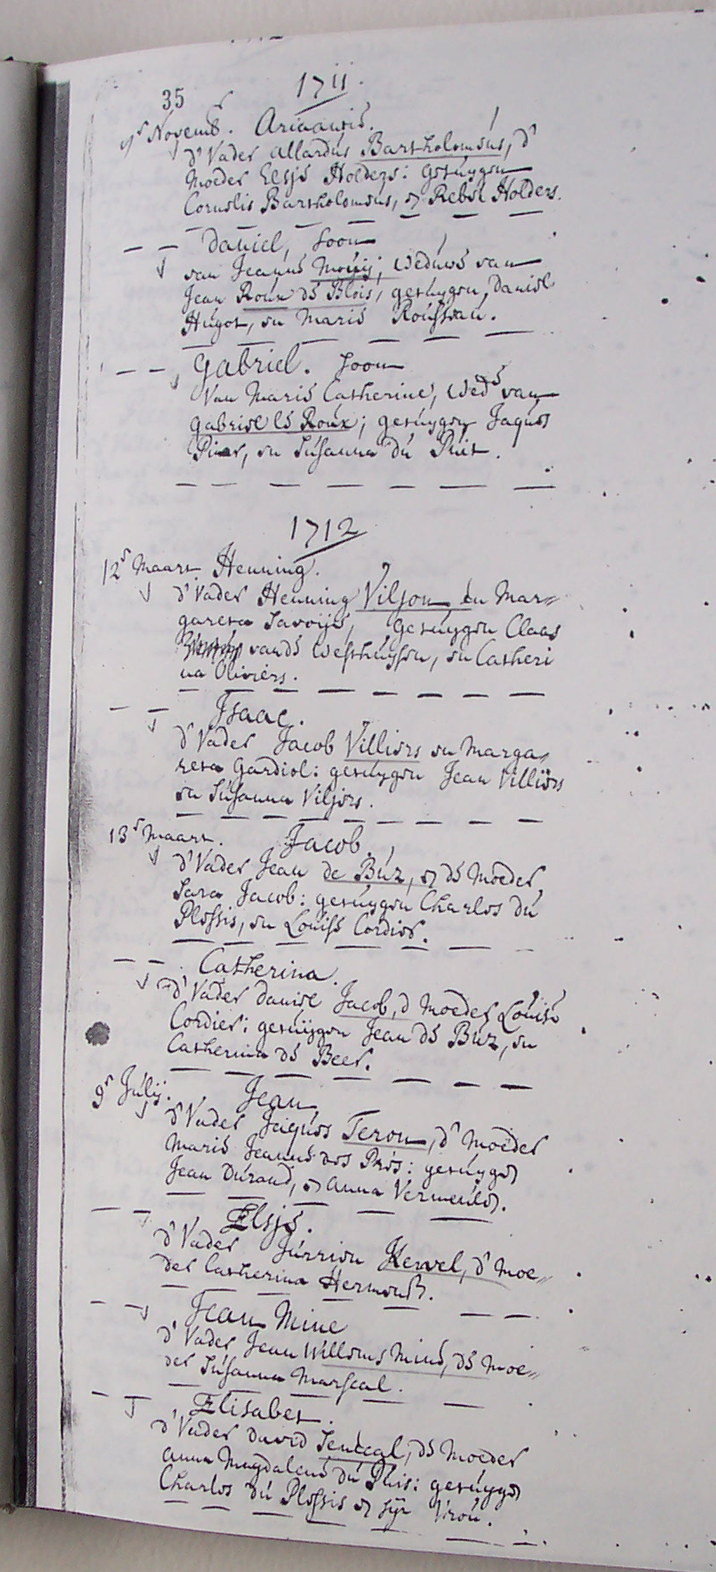 35 1711.
Novemb. Ariaantie.
d' Vader Allardus Bartholomeus, d'
moeder Elsje Holders: getuygen
Cornelis Bartholomeus, en Rebel Holders.
Daniel, Soon
van Jeanne Mouy, weduwe van
Jean Roux de Blois, getuygen, Daniel
Hugot, en Marie Rousseau.
Gabriel. Soon
Van Marie Catherine, wede van
gabriel le Roux; getuygen Jaques
Pinar, en Susanna du Puit.
1712
12e Maart Henning.
d' Vader Henning Viljon en Mar-
gareta Savoije, getuygen Claas
vande Westhuysen, en Catheri
na Oliviers.
Isaac.
d' Vader Jacob Villiers en Marga-
reta Gardiol: getuygen Jean Villiers
en Susanna Viljers.
13e Maart. Jacob.
d' Vader Jean de Buz, en de Moeder,
Sara Jacob: getuygen Charles du
Plessis, en Louise Cordier.
Catherina.
d' Vader Daniel Jacob, d Moeder Louise
Cordier: getuygen Jean de Buz, en
Catherina de Beer.
9e Julij. Jean
d' Vader Jaques Teron, d' moeder
Marie Jeanne des Pres: getuygen
Jean Durand, en Anna Vermeulen.
Elsje.
d' Vader Jurrien Hewel, d' Moe-
der Catherina Hermensz.
Jean Mine
d' Vader Jean Willems Mine, de Moe-
der Susanna Marseal.
Elisabet.
d' Vader David Senecal, de Moeder
Anna Magdalene du Puis: getuygen
Charles du Plessis en syn Vrou.